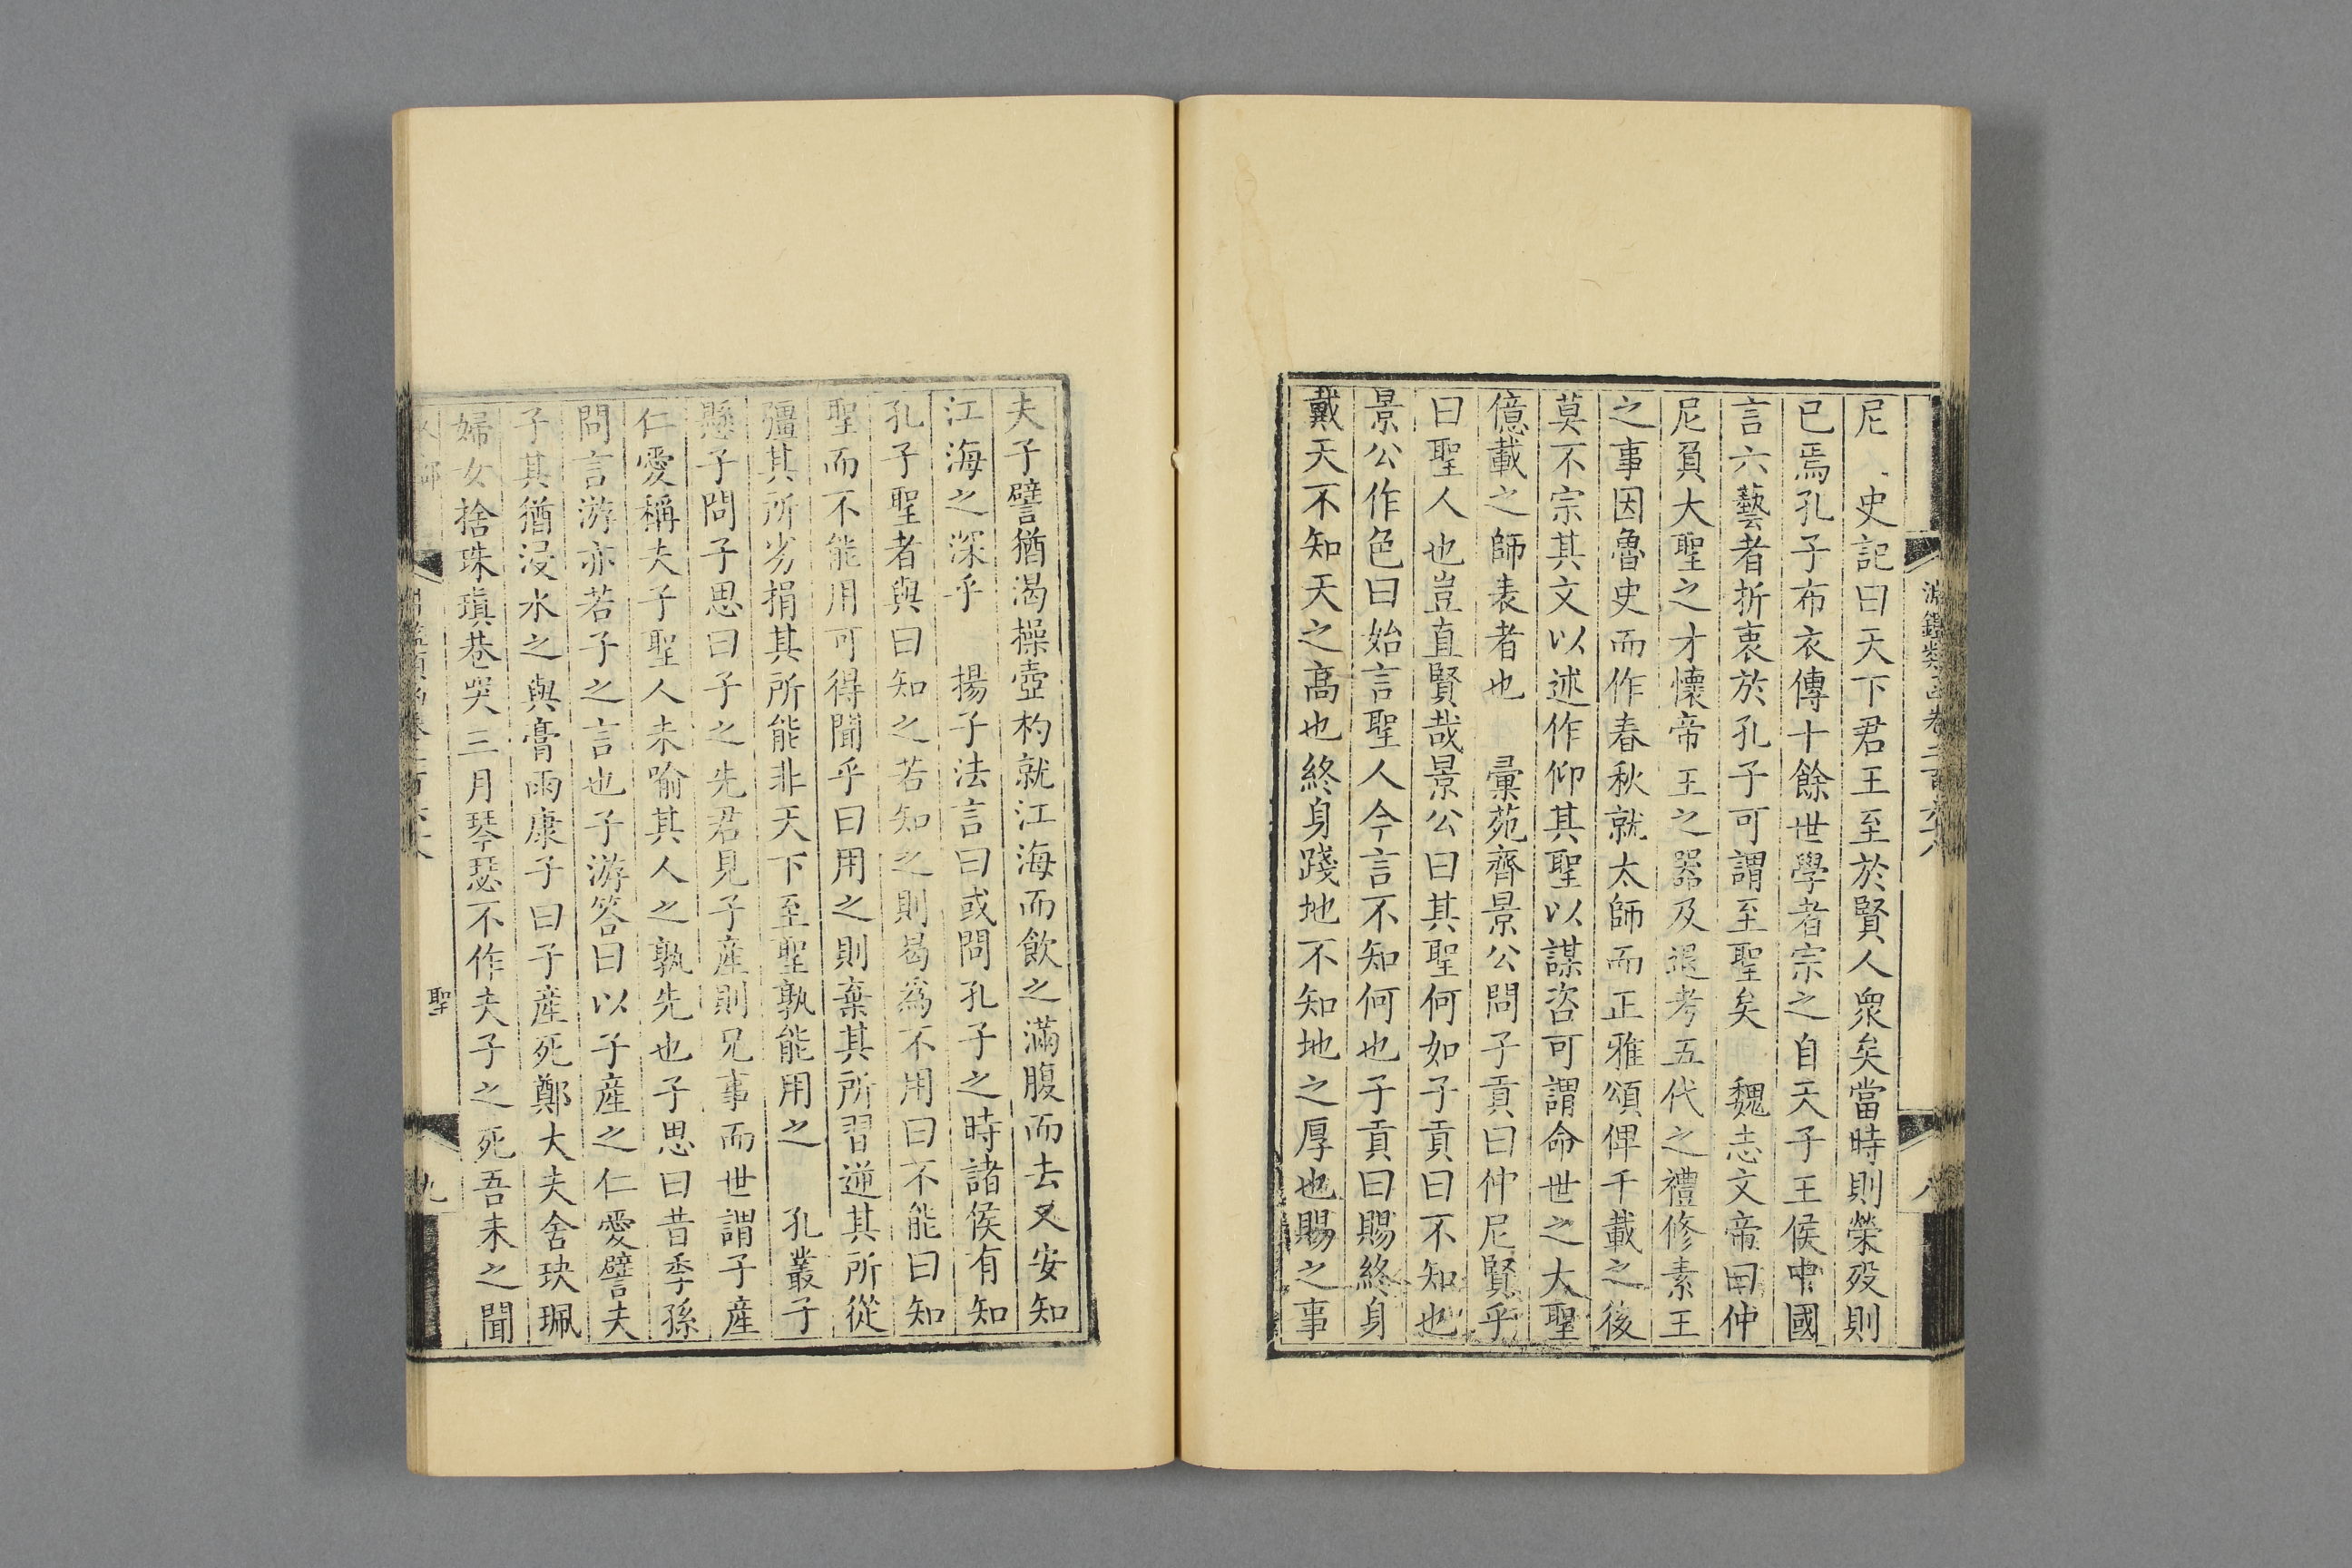 淵鑑類函卷二百六十八
八
尼　史記曰天下君王至於賢人衆矣當時則榮殁則
已焉孔子布衣傳十餘世學者宗之自天子王侯中國
言六藝者折衷於孔子可謂至聖矣　魏志文帝曰仲
尼負大聖之才懷帝王之器及退考五代之禮修素王
之事因魯史而作春秋就太師而正雅頌俾千載之後
莫不宗其文以述作仰其聖以謀咨可謂命世之大聖
億載之師表者也　彚苑齊景公問子貢曰仲尼賢乎
曰聖人也豈直賢哉景公曰其聖何如子貢曰不知也
景公作色曰始言聖人今言不知何也子貢曰賜終身
戴天不知天之髙也終身踐地不知地之厚也賜之事
夫子譬猶渴操壺杓就江海而飲之滿腹而去又安知
江海之深乎　揚子法言曰或問孔子之時諸侯有知
孔子聖者與曰知之若知之則曷爲不用曰不能曰知
聖而不能用可得聞乎曰用之則棄其所習逆其所從
彊其所劣捐其所能非天下至聖孰能用之　孔叢子
懸子問子思曰子之先君見子產則兄事而世謂子產
仁愛稱夫子聖人未喻其人之孰先也子思曰昔季孫
問言游亦若子之言也子游答曰以子產之仁愛譬夫
子其猶浸水之與膏雨康子曰子產死鄭大夫舍玦珮
婦女捨珠瑱巷哭三月琴瑟不作夫子之死吾未之聞
聖
九